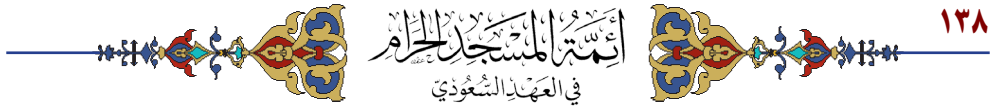 ١٣٨
أَئِمَّةُ المَسْجِدِ الحَرَامِ
في العَهْدِ السُّعُودِيّ